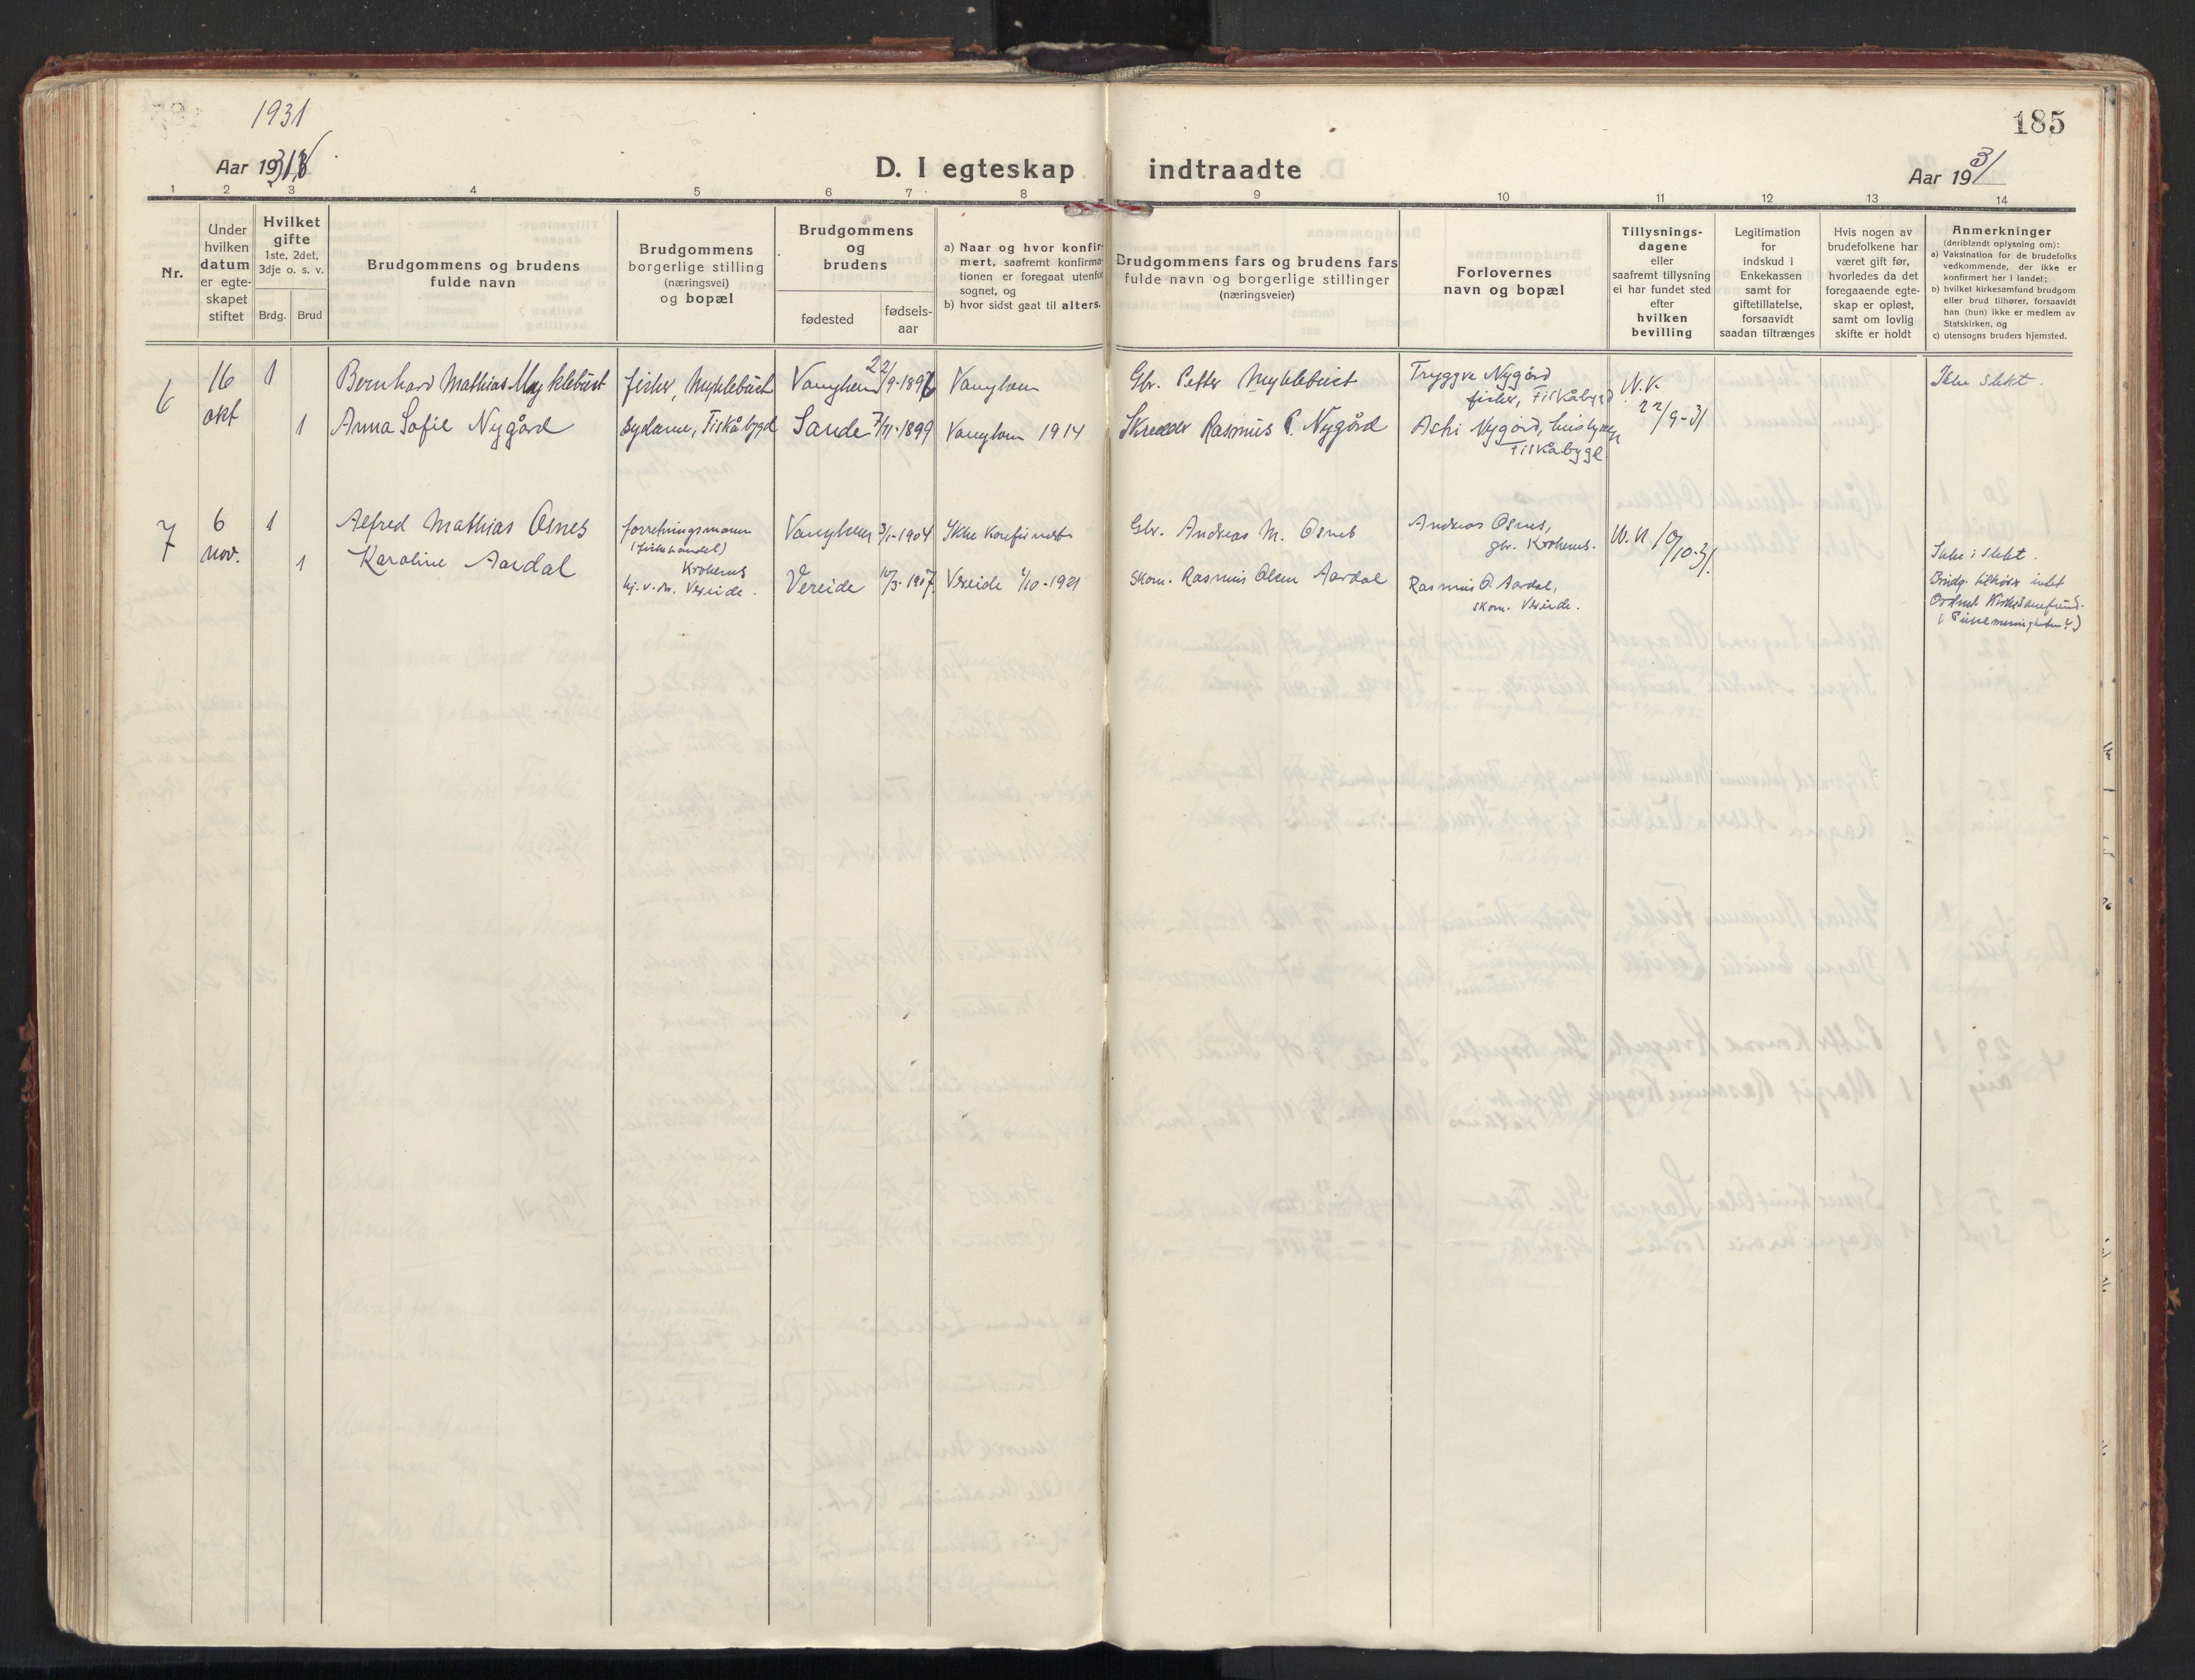 1931
185
Aar 1931
D. I egteskap indtraadte
Aar 1931
1 2 3 4 5 6 7 8 9 10 11 12 13 14
Nr.
Under hvilken datum er egte-skapet stiftet
Hvilket gifte
1ste, 2det, 3dje o. s. v.
Brdg. Brud
Brudgommens og brudens fulde navn
Brudgommens borgerlige stilling (næringsvei) og bopæl
Brudgommens og brudens
fødested
fødsels-aar
a) Naar og hvor konfir-mert, saafremt konfirma-tionen er foregaat utenfor sognet, og
b) hvor sidst gaat til alters.
Brudgommens fars og brudens fars fulde navn og borgerlige stillinger (næringsveier)
Forlovernes navn og bopæl
Tillysnings-dagene eller saafremt tillysning ei har fundet sted efter hvilken bevilling
Legitimation for indskud i Enkekassen samt for giftetillatelse, forsaavidt saadan tiltrænges
Hvis nogen av brudefolkene har været gift før, hvorledes da det foregaaende egte-skap er opløst, samt om lovlig skifte er holdt
Anmerkninger
(deriblandt oplysning om):
a) Vaksination for de brudefolks vedkommende, der ikke er konfirmert her i landet;
b) hvilket kirkesamfund brudgom eller brud tilhører, forsaavidt han (hun) ikke er medlem av Statskirken, og
c) utensogns bruders hjemsted.
6
16 okt
1
Bernhard Mathias Myklebust
fisker, Myklebust
Vanylven
22/9-1897
Vanylven
Gbr. Petter Myklebust
Tryggve Nygård
fisker, Fiskåbygd
V.K.
22/9-31
Ikke slekt.
1
Anna Sofie Nygård
sydame, Fiskåbygd
Sande
7/11-1899
Vanylven 1914
Skredder Rasmus P. Nygård
Nygård,
Fiskåbygd.
7
6 nov.
1
Alfred Mathias Osnes
forretningsmann
(fiskehandel)
Vanylven
3/1-1904
Ikke konfirmert
Gbr. Andreas M. Osnes
Andreas Osnes,
gbr.
V.K. 10/10-31.
1
Karoline Aardal
hj. v. m. Vereide.
Vereide
10/3-1907.
Vereide /10-1921
Skom. Rasmus Olsen Aardal
Rasmus O. Aardal,
skom. Vereide.
Ikke i slekt.
Brudg. tilhører intet
Ordnet Kirkesamfund.